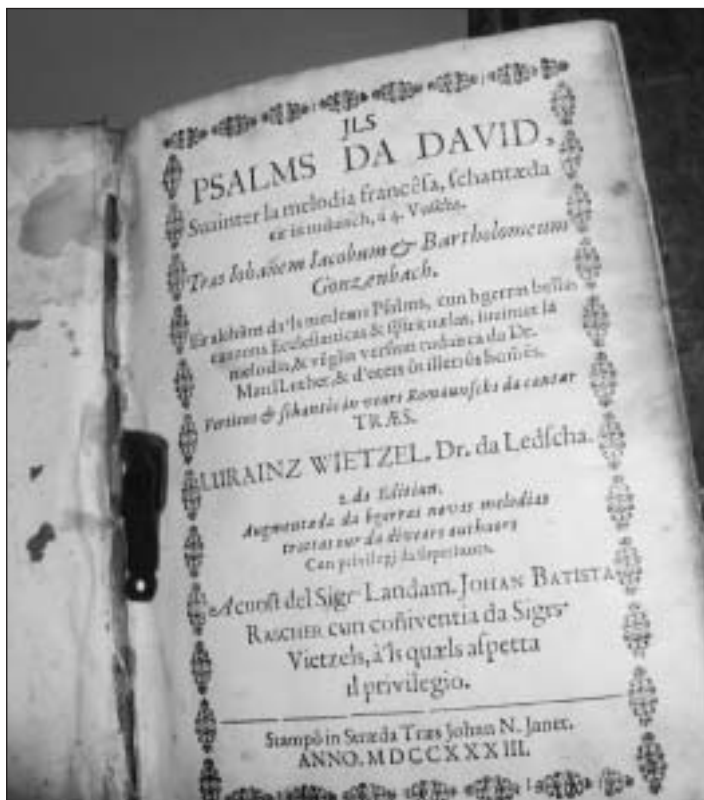 JLS
PSALMS DA DAVID,
Suainter la melodia francêſa, ſchantæda
eir in tudaisch, à 4. Vuſchs.
Tras Iohañem Iacobum & Bartholomeum
Gonzenbach.
da'ls medems Pſalms, cun bgerras bellas
canzuns Eccleſiaſticas & ſpirituælas, ſuainter la
melodia, & verſiun tudaisca da Dr.
& d'oters
& in vears Romaunſchs da cantar
TRÆS.
LURAINZ WIETZEL. Dr. da Ledſcha.
2. da Editiun.
Augmentada da bgerras novas melodias
our da divears authuors
Cun privilegi da Superiuors.
A cuoſt del Sigr. Landam. JOHAN BATISTA
RASCHER cun coñiventia da Sigrs.
Vietzels, à'ls quæls aſpetta
il privilegio.
Stampô in Stræda Træs Johan N. Janet.
ANNO. MDCCXXXIII.